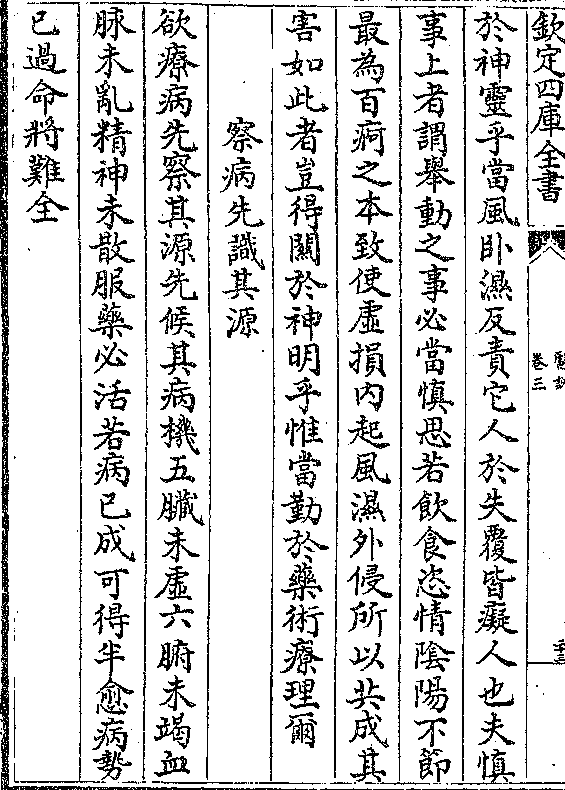 欽定四庫全書
卷三
於神靈乎當風卧濕反責它人於失覆皆癡人也夫慎
事上者謂舉動之事必當慎思若飲食恣情陰陽不節
最為百痾之本致使虛損内起風濕外侵所以共成其
害如此者豈得關於神明乎惟當勤於藥術療理爾
察病先識其源
欲療病先察其源先候其病機五臟未虛六腑未竭血
脉未亂精神未散服藥必活若病已成可得半愈病勢
已過命將難全